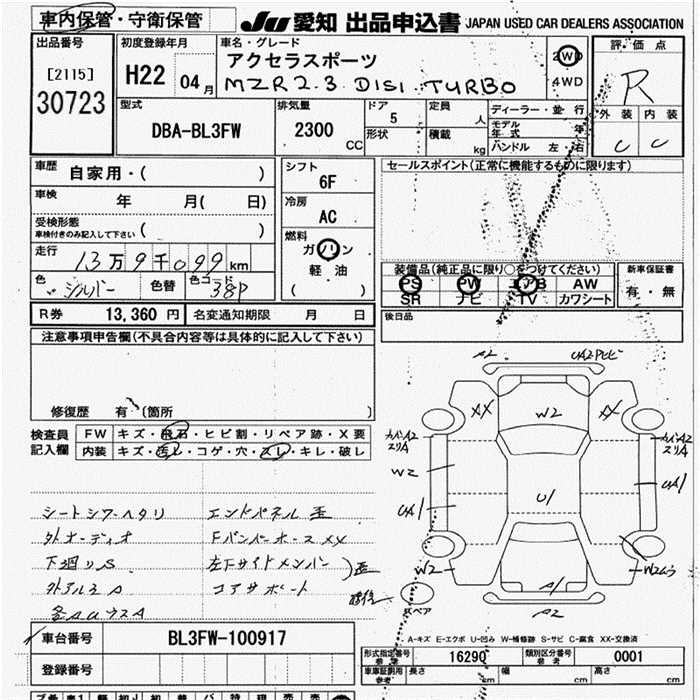 車内保管・守衛保管
JU 愛知 出品申込書 JAPAN USED CAR DEALERS ASSOCIATION
出品番号
[2115]
30723
初度登録年月
H22 04月
車名・グレード
アクセラスポーツ
MZR 2.3 DISI TURBO
2WD
4WD
評価点
R
外装 内装
C C
型式
DBA-BL3FW
排気量
2300 CC
ドア
5
形状
定員 人
積載 kg
ディーラー・並行
モデル年式 年
ハンドル 左・右
車歴 自家用・( )
車検 年 月( 日)
受検形態
車検付きのみ記入して下さい ( )
走行
13万9千099km
色 シルバー 色替 色コード 38P
シフト
6F
冷房
AC
燃料
ガソリン
軽油
( )
セールスポイント(正常に機能するものに限ります)
装備品(純正品に限り○をつけてください)
PS PW エアB AW
SR ナビ TV カワシート
新車保証書
有・無
R券 13,360 円 名変通知期限 月 日
後日品
注意事項申告欄(不具合内容等は具体的に記入して下さい)
修復歴 有 (箇所 )
検査員
記入欄
FW キズ・飛石・ヒビ割・リペア跡・X要
内装 キズ・汚レ・コゲ・穴・スレ・キレ・破レ
シートシワヘタリ
外オーディオ
下廻りS
外アルミA
各AUワズA
エンドパネル歪
FバンパーホースXX
左下サイドメンバー
コアサポート
歪
修正
A2
UA2アビビ
XX
W2
XX
カバンA2
スリA
カバンA2
スリA
W2
UA1
UA1
U1
W2
W2ムラ
A1
A2
スペア
A-キズ E-エクボ U-凹み W-補修跡 S-サビ C-腐食 XX-交換済
車台番号 BL3FW-100917
登録番号
形式指定番号
参考
16290
類別区分番号
参考
0001
車車証期間
参考
長さ cm 幅 cm 高さ cm